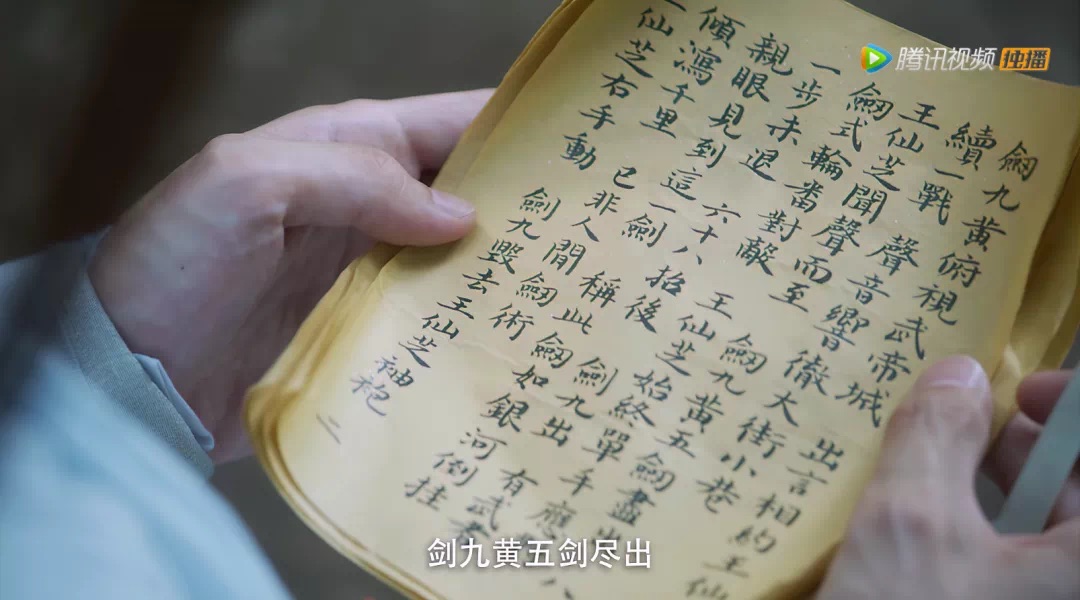 腾讯视频 独播
劒九黃俯視武帝城 出言相約王仙
續一戰 聲音響徹大街小巷
王仙芝聞聲而至 劒九黃五劒盡出
劒式輪番對敵 王仙芝始終單手應八
一步未退 六十八招後 劍九出 有武者
親眼見到這一劍 稱此劒如銀河倒挂
傾瀉千里 已非人間劒術
仙芝右手動 劍九毀去王仙芝袖袍 二
剑九黄五剑尽出